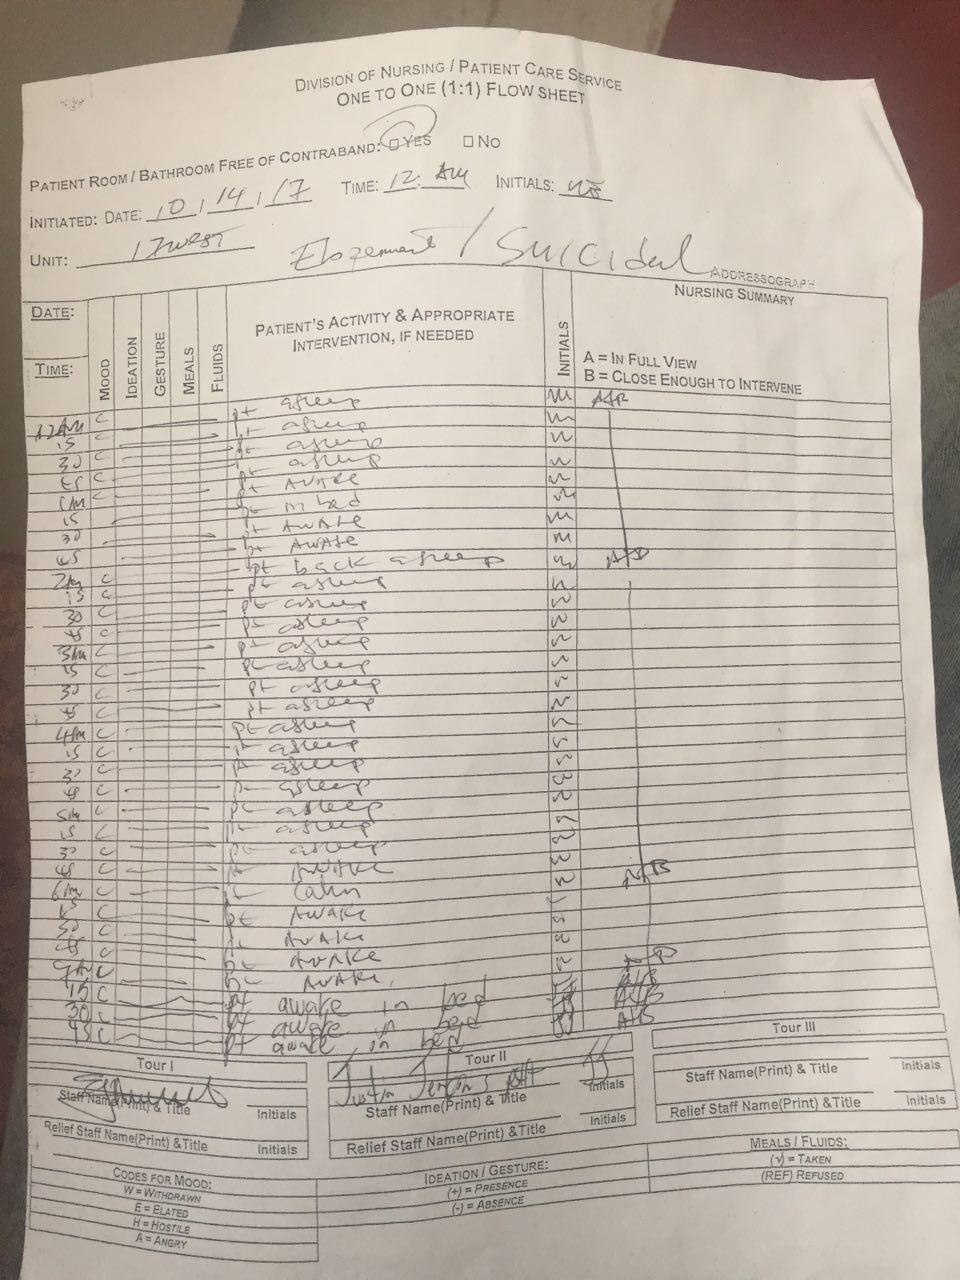 DIVISION OF NURSING / PATIENT CARE SERVICE
ONE TO ONE (1:1) FLOW SHEET
PATIENT ROOM / BATHROOM FREE OF CONTRABAND: □ YES □ NO
INITIATED: DATE: 10 / 14 / 17 TIME: 12: AM INITIALS:
UNIT: 17WEST Elopement / Suicidal ADDRESSOGRAPH
DATE: TIME: MOOD IDEATION GESTURE MEALS FLUIDS
PATIENT'S ACTIVITY & APPROPRIATE
INTERVENTION, IF NEEDED
INITIALS
NURSING SUMMARY
A = IN FULL VIEW
B = CLOSE ENOUGH TO INTERVENE
12AM C pt asleep
15 C pt asleep
30 C pt asleep
45 C pt asleep
1AM C pt AWAKE
15 pt in bed
30 pt AWAKE
45 pt AWAKE
2AM C pt back asleep
15 C pt asleep
30 C pt asleep
45 C pt asleep
3AM C pt asleep
15 C pt asleep
30 C pt asleep
45 C pt asleep
4AM C pt asleep
15 C pt asleep
30 C pt asleep
45 C pt asleep
5AM C pt asleep
15 C pt asleep
30 C pt asleep
45 C pt AWAKE
6AM C pt Calm
15 C pt AWAKE
30 C pt AWAKE
45 C pt AWAKE
7AM C pt AWAKE
15 C pt awake in bed A/B
30 C pt awake in bed A/B
45 C pt awake in bed A/B
Tour I
Staff Name(Print) & Title Initials
Relief Staff Name(Print) & Title Initials
Tour II
Justin Jenkins JJ
Staff Name(Print) & Title Initials
Relief Staff Name(Print) & Title Initials
Tour III
Staff Name(Print) & Title Initials
Relief Staff Name(Print) & Title Initials
CODES FOR MOOD:
W = WITHDRAWN
E = ELATED
H = HOSTILE
A = ANGRY
IDEATION / GESTURE:
(+) = PRESENCE
(-) = ABSENCE
MEALS / FLUIDS:
(√) = TAKEN
(REF) REFUSED